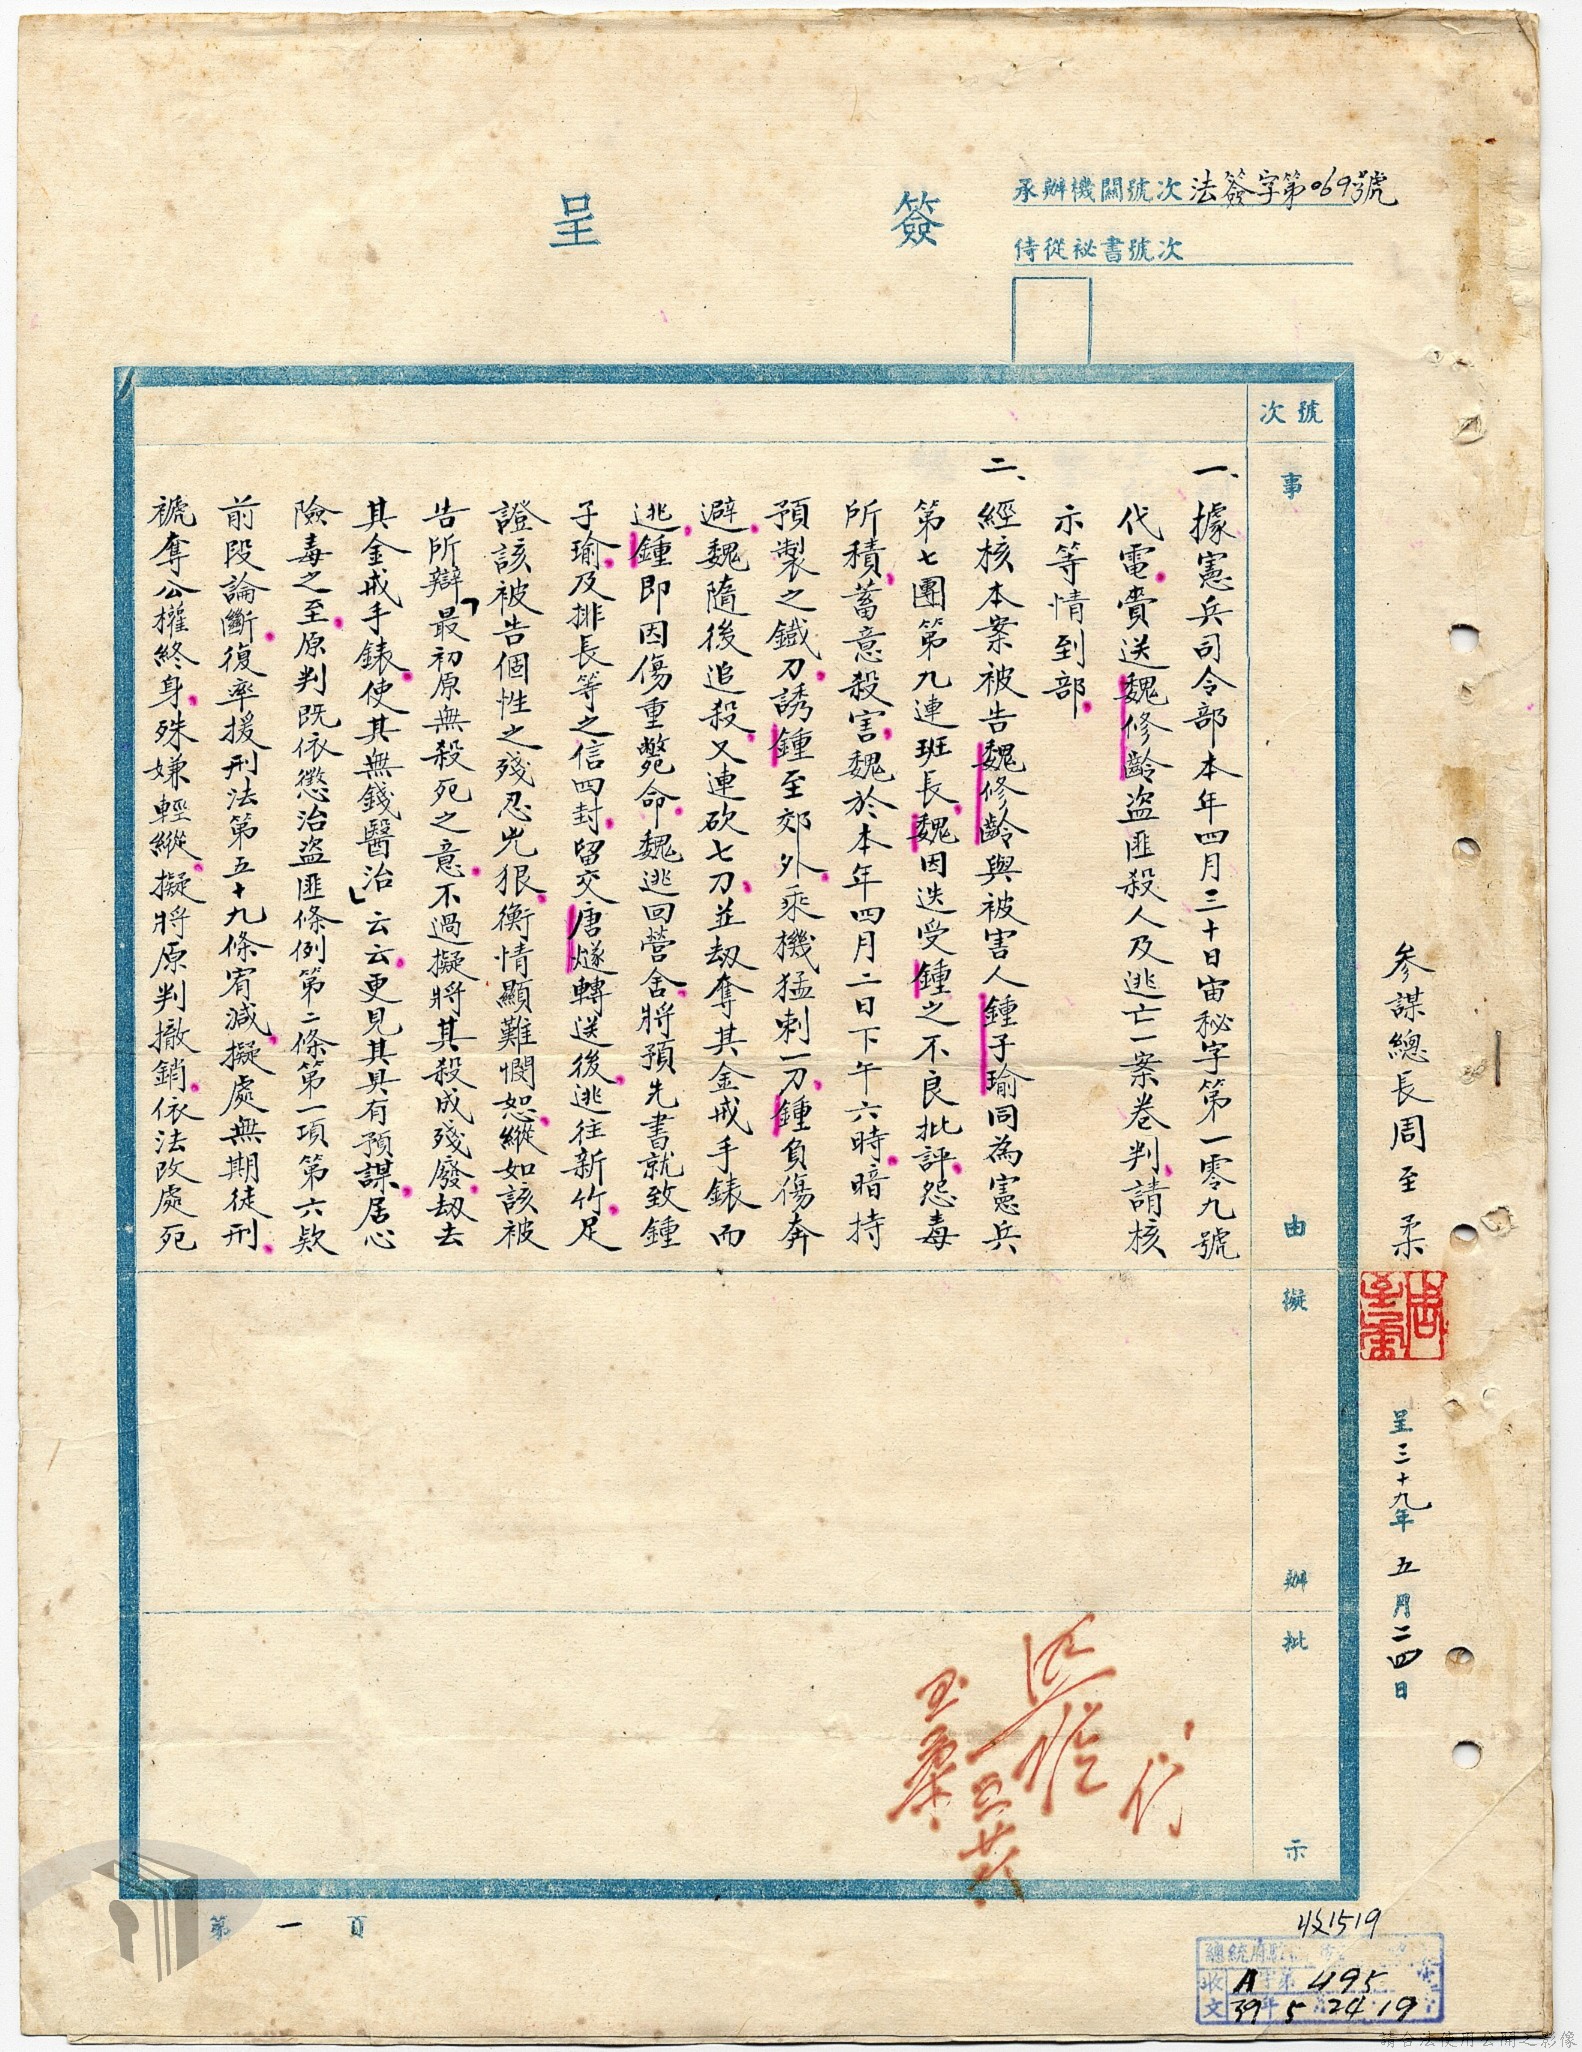 簽呈
承辦機關號次 法簽字第069號
侍從祕書號次
參謀總長周至柔
周至柔
呈三十九年五月二四日
號次
事由
擬辦
批示
一、據憲兵司令部本年四月三十日宙秘字第一零九號
代電，賫送魏修齡盜匪殺人及逃亡一案卷判，請核
示等情到部。
二、經核本案被告魏修齡與被害人鍾子瑜同為憲兵
第七團第九連班長，魏因迭受鍾之不良批評，怨毒
所積，蓄意殺害，魏於本年四月二日下午六時，暗持
預製之鐵刀，誘鍾至郊外，乘機猛刺一刀，鍾負傷奔
避，魏隨後追殺，又連砍七刀，並劫奪其金戒手錶而
逃，鍾即因傷重斃命，魏逃回營舍，將預先書就致鍾
子瑜，及排長等之信四封，留交唐燧轉送後，逃往新竹，足
證該被告個性之殘忍兇狠，衡情顯難憫恕，縱如該被
告所辯「最初原無殺死之意，不過擬將其殺成殘廢，劫去
其金戒手錶，使其無錢醫治」云云，更見其具有預謀，居心
險毒之至，原判既依懲治盜匪條例第二條第一項第六款
前段論斷，復率援刑法第五十九條宥減，擬處無期徒刑，
褫奪公權終身，殊嫌輕縱，擬將原判撤銷，依法改處死
第一頁
收1519
收文 A字第495
39年5 24 19
請合法使用公開之影像